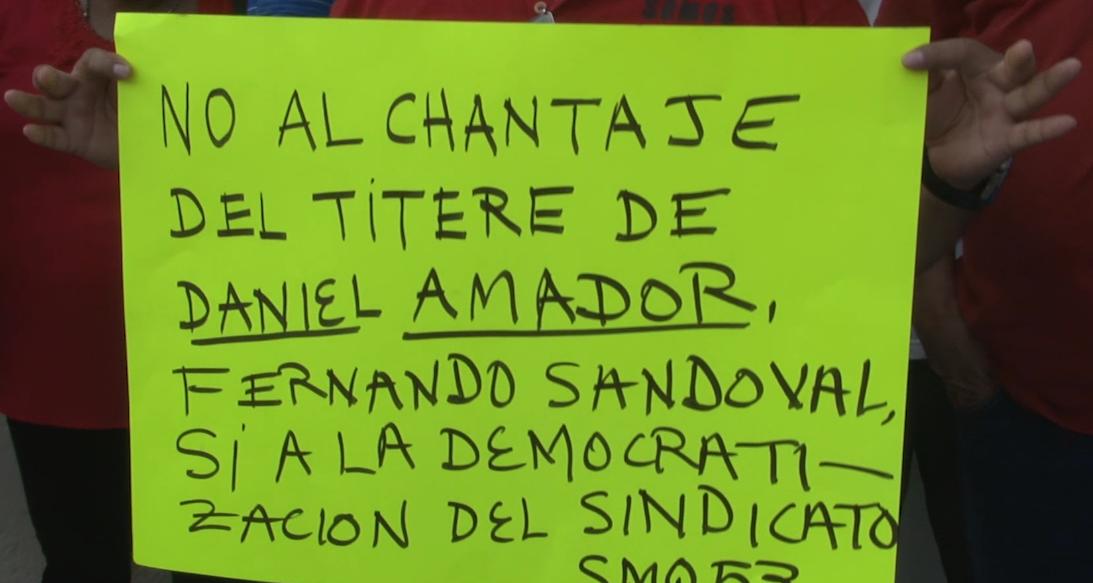 NO AL CHANTAJE
DEL TÍTERE DE
DANIEL AMADOR,
FERNANDO SANDOVAL,
SÍ A LA DEMOCRATI-
ZACION DEL SINDICATO